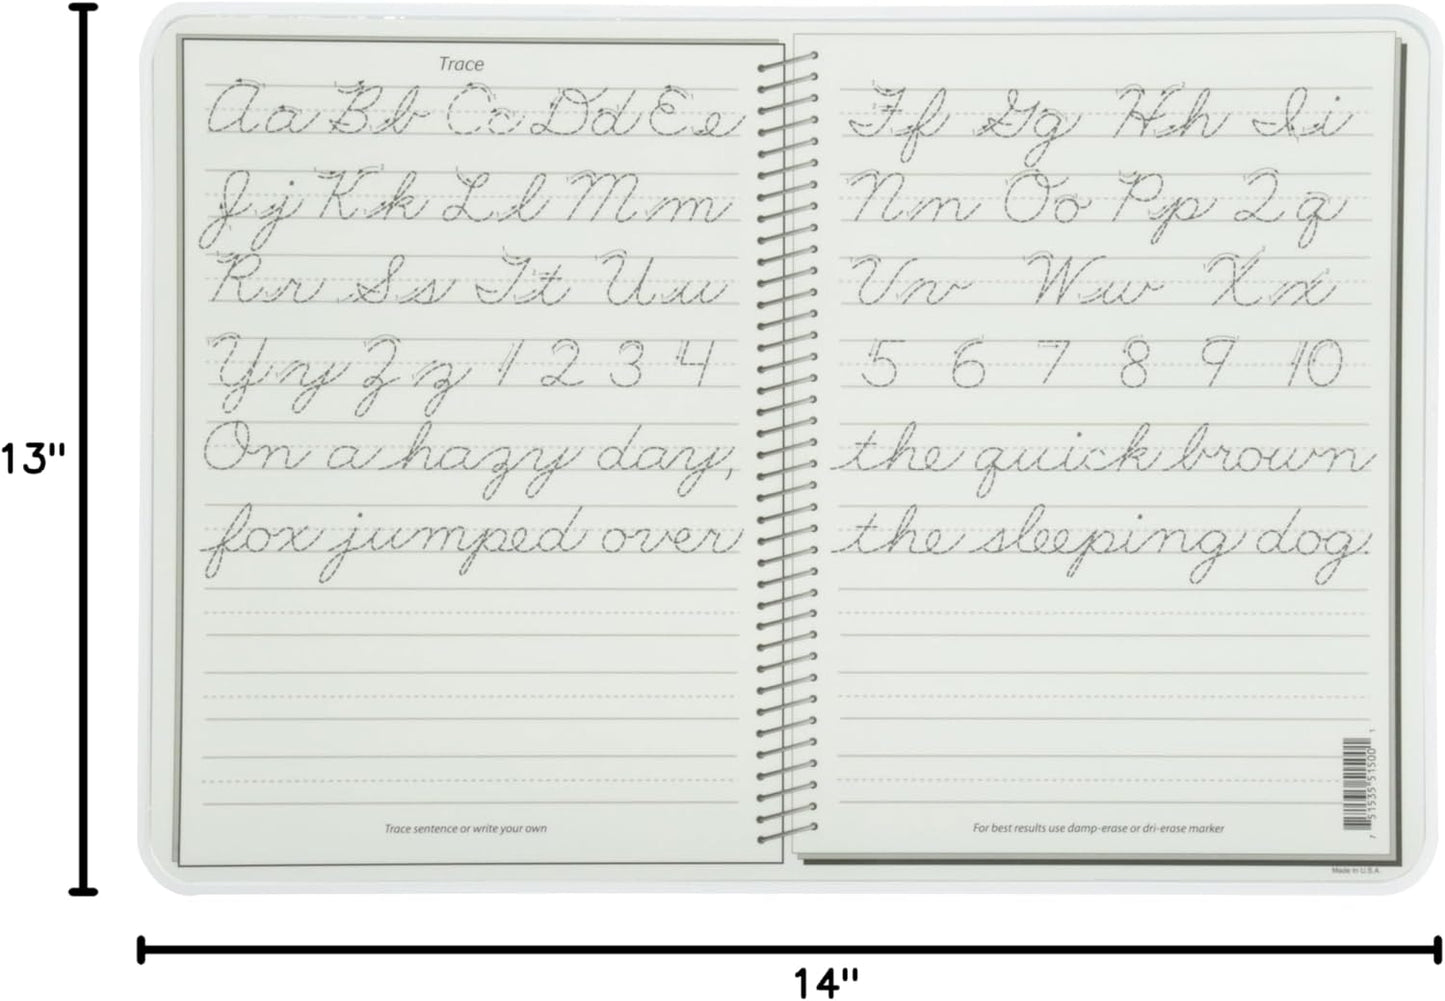 Trace
Aa Bb Cc Dd Ee
Ff Gg Hh Ii
Jj Kk Ll Mm
Nn Oo Pp Qq
Rr Ss Tt Uu
Vv Ww Xx
Yy Zz 1 2 3 4
5 6 7 8 9 10
On a hazy day,
the quick brown
fox jumped over
the sleeping dog.
Trace sentence or write your own
For best results use damp-erase or dri-erase marker
7 51535 51500 1
Made In U.S.A.
13"
14"